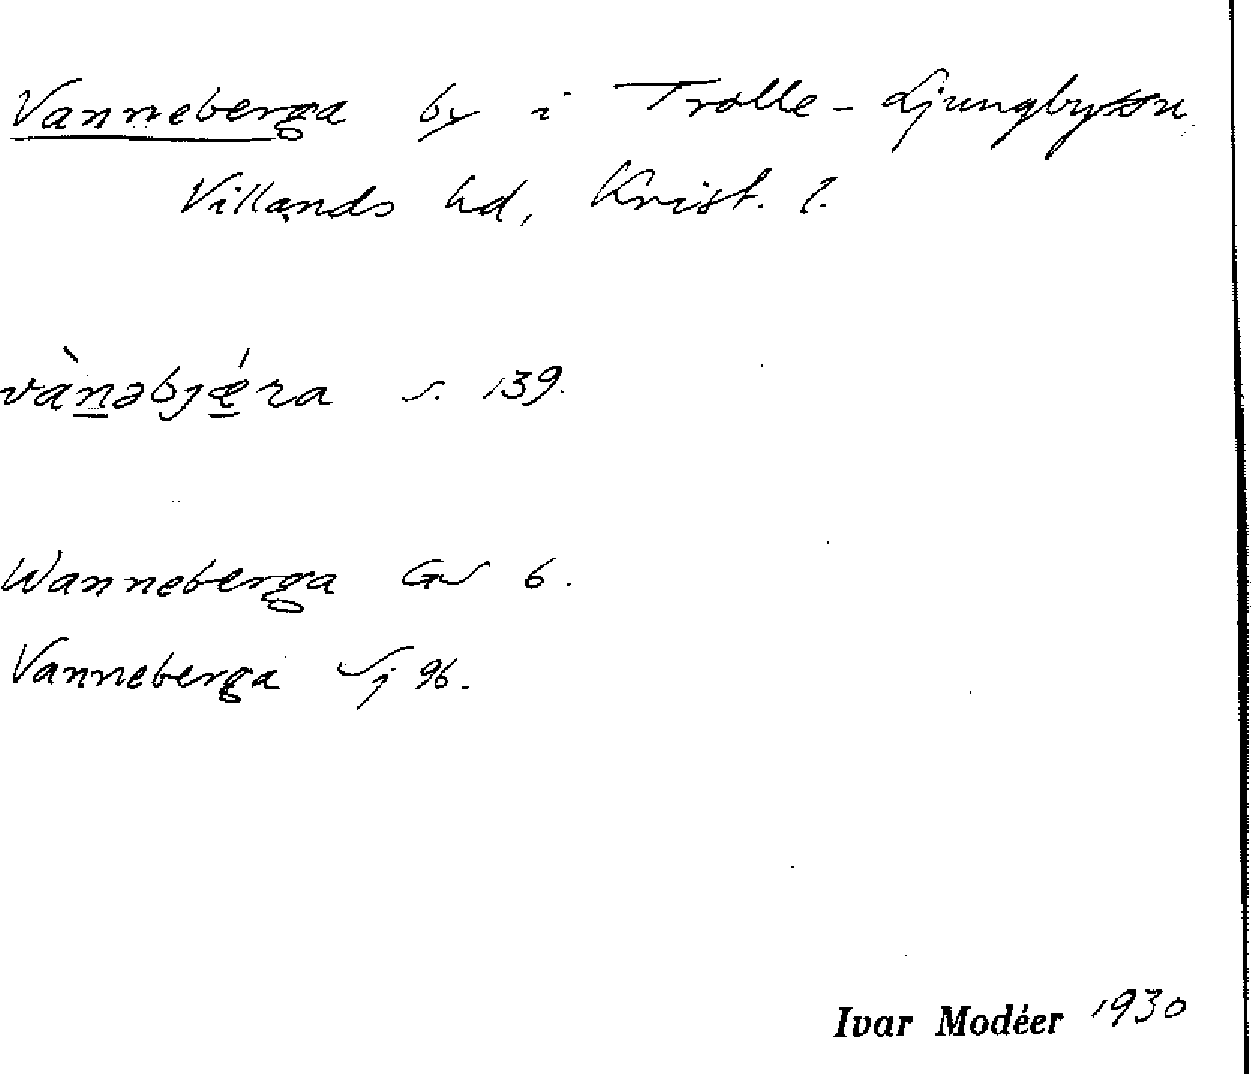 Vanneberga by i Trolle-Ljungby sn
Villands hd, Krist. l.
vànəbjǽra s. 139.
Wanneberga GS 6.
Vanneberga Sj 96.
Ivar Modéer 1930